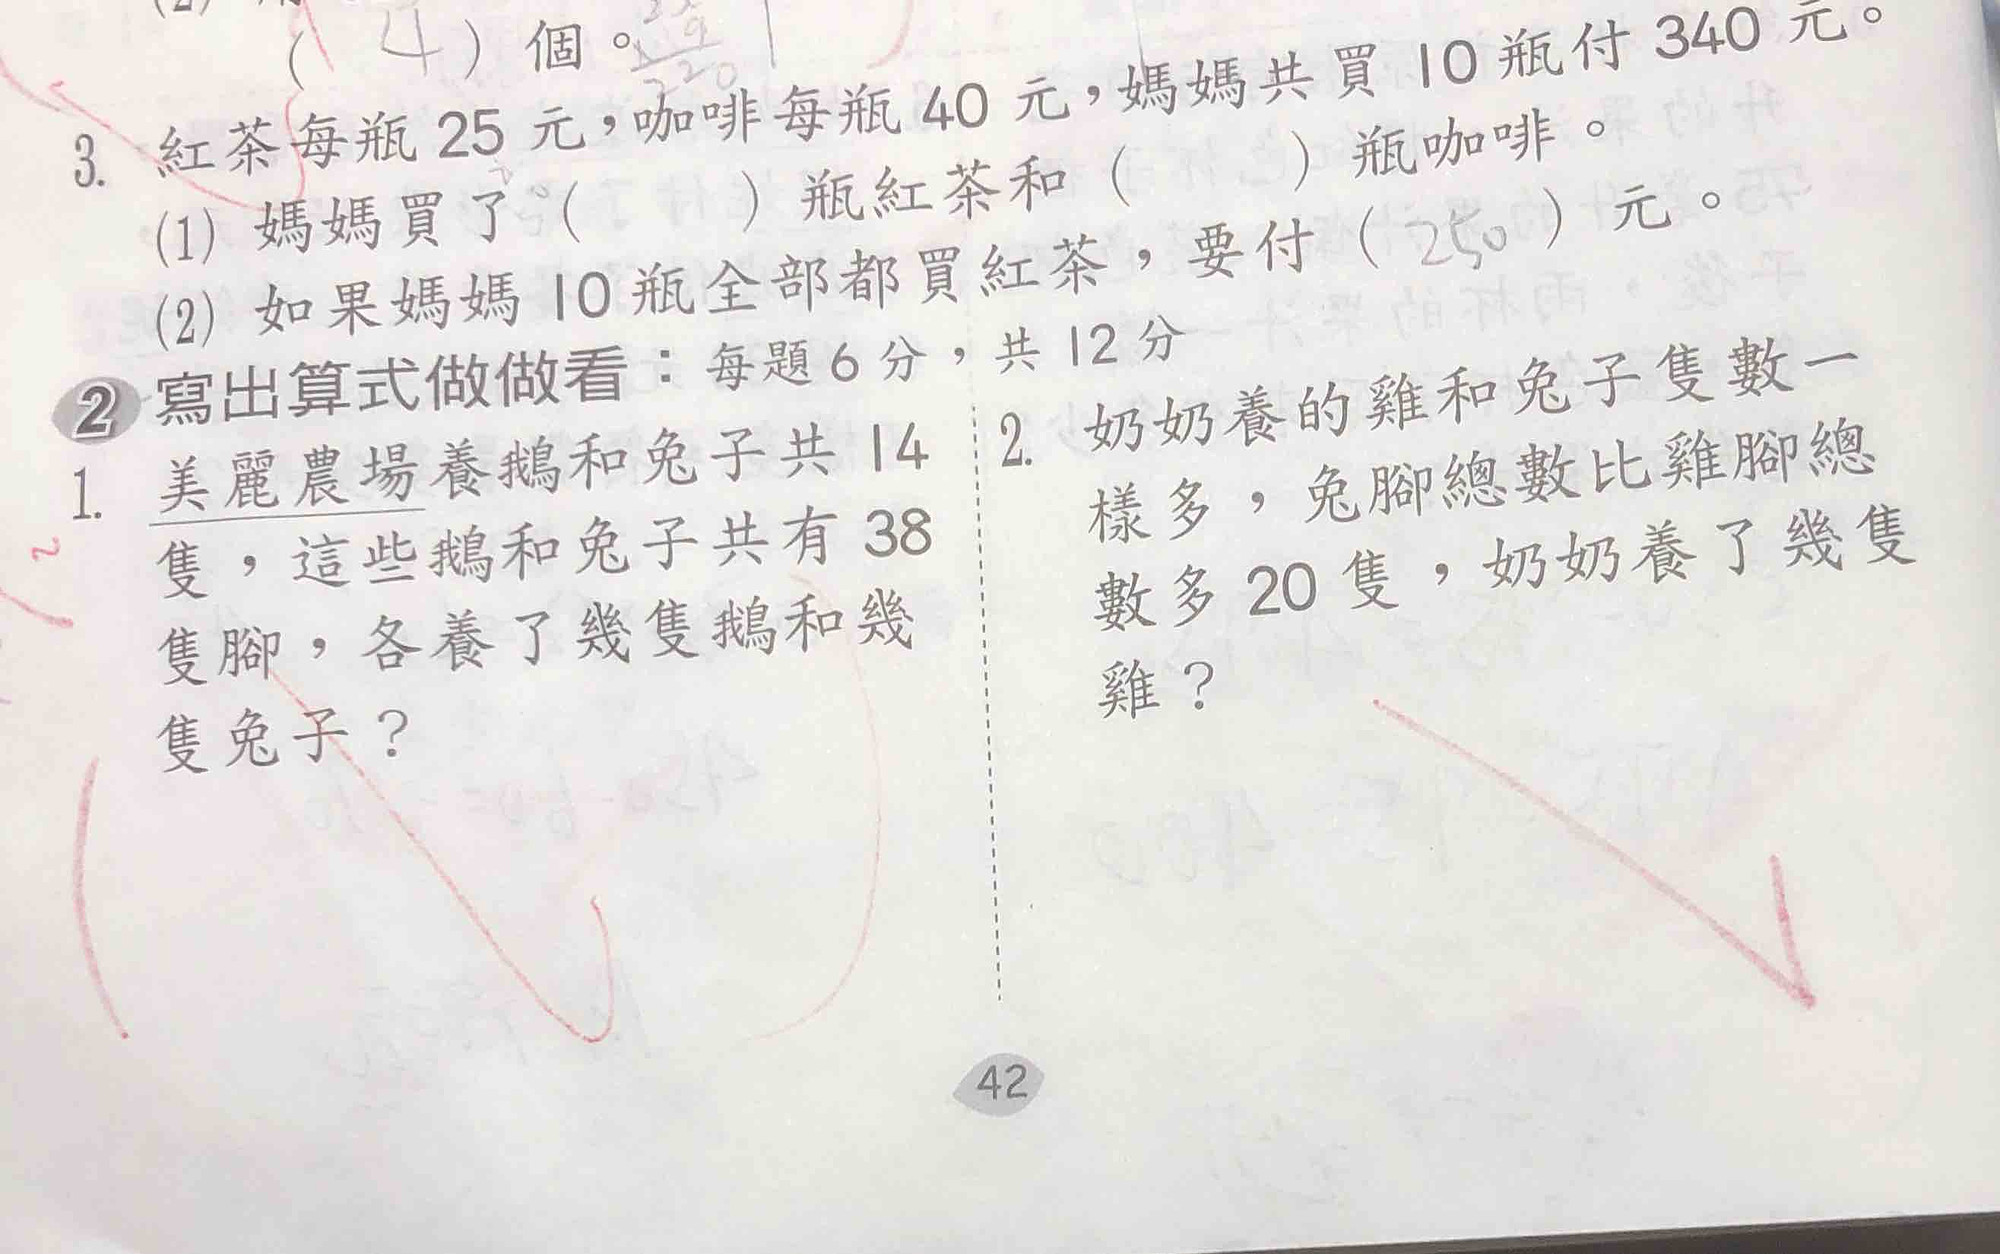 ( 4 ) 個。
3. 紅茶每瓶 25 元，咖啡每瓶 40 元，媽媽共買 10 瓶付 340 元。
(1) 媽媽買了 (　　) 瓶紅茶和 (　　) 瓶咖啡。
(2) 如果媽媽 10 瓶全部都買紅茶，要付 ( 250 ) 元。
2 寫出算式做做看：每題 6 分，共 12 分
1. 美麗農場養鵝和兔子共 14
隻，這些鵝和兔子共有 38
隻腳，各養了幾隻鵝和幾
隻兔子？
2. 奶奶養的雞和兔子隻數一
樣多，兔腳總數比雞腳總
數多 20 隻，奶奶養了幾隻
雞？
42